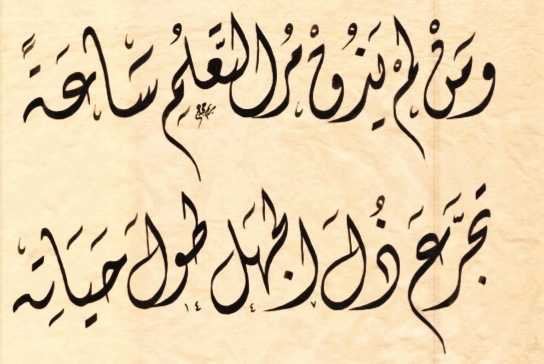 ومَنْ لم يَذُقْ مُرَّ التَّعَلُّمِ سَاعَةً
تجرَّعَ ذُلَّ الجهلِ طولَ حَيَاتِهِ